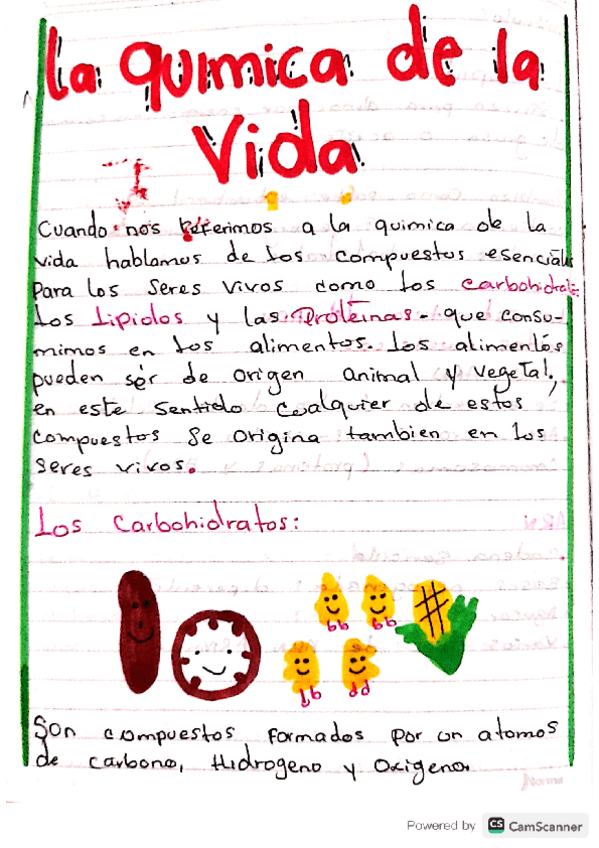 La quimica de la
Vida
Cuando nos referimos a la quimica de la
vida hablamos de los compuestos esenciales
Para los seres vivos como los carbohidratos
Los Lipidos y las Proteinas - que consu-
mimos en los alimentos. Los alimentos
pueden ser de origen animal y vegetal,
en este sentido cualquier de estos
compuestos se origina tambien en los
seres vivos.
Los Carbohidratos:
Son compuestos formados por un atomos
de carbono, Hidrogeno y Oxigeno
Norma
Powered by CS CamScanner